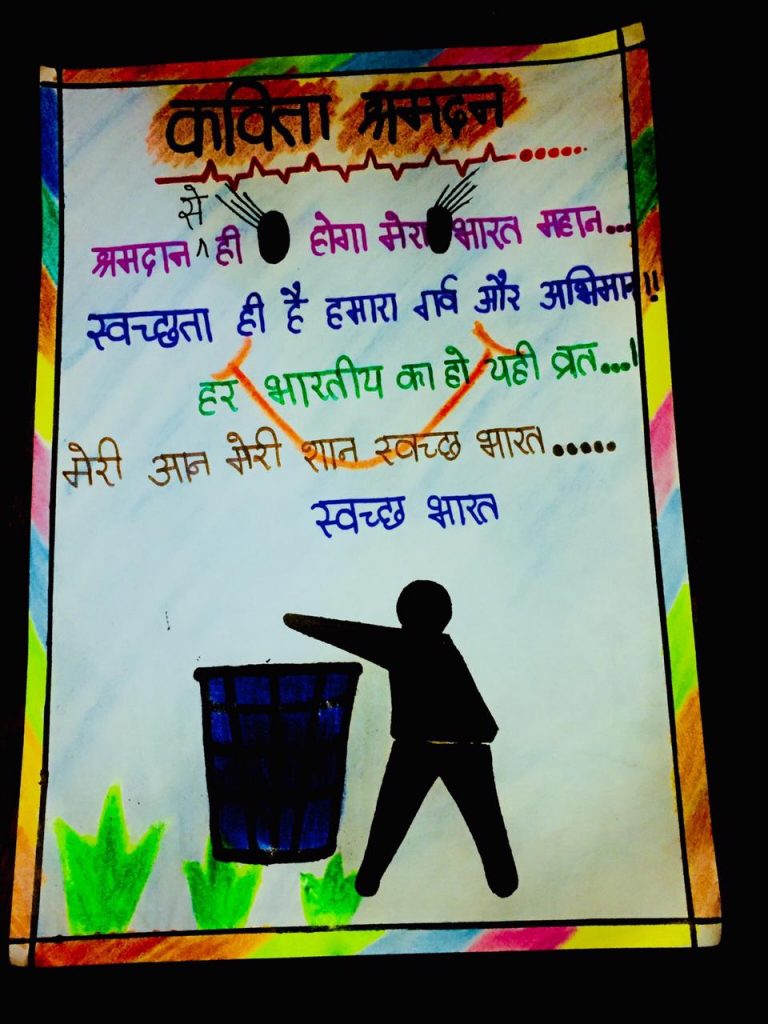 कविता श्रमदान
श्रमदान से ही होगा मेरा भारत महान...
स्वच्छता ही है हमारा गर्व और अभिमान!!
हर भारतीय का हो यही व्रत...!
मेरी आन मेरी शान स्वच्छ भारत.....
स्वच्छ भारत